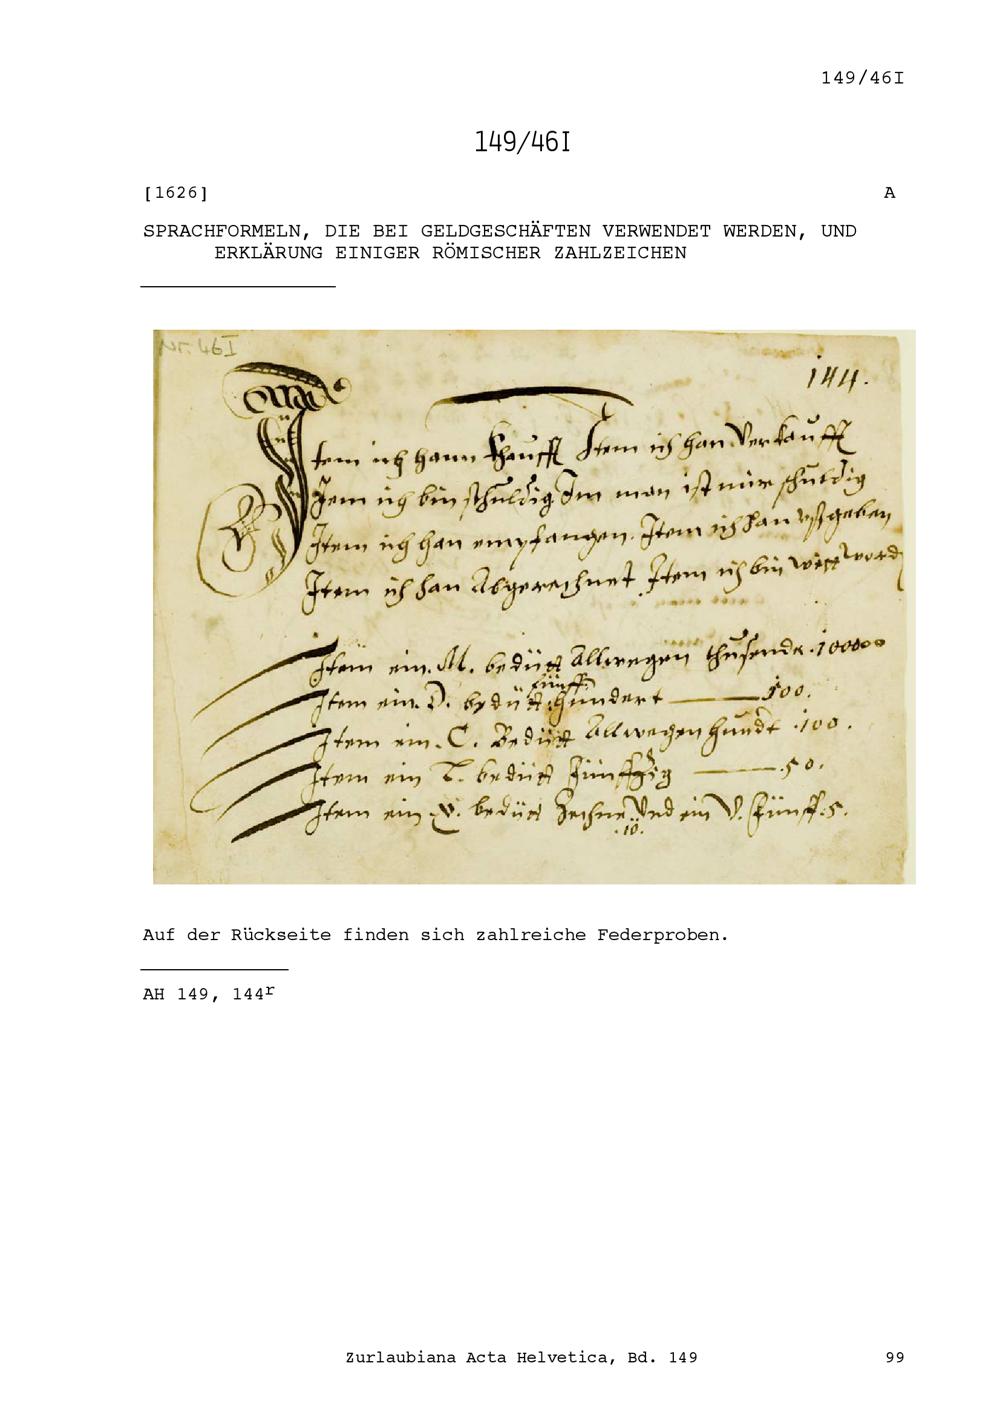 149/46I
149/46I
[1626] A
SPRACHFORMELN, DIE BEI GELDGESCHÄFTEN VERWENDET WERDEN, UND
ERKLÄRUNG EINIGER RÖMISCHER ZAHLZEICHEN
Nr. 46I
144.
Item ich hann khaufft Item ich han Verkaufft
Item ich bin schuldig Im man ist mir schuldig
Item ich han empfangen. Item ich han vßgeben
Item ich han Abgerechnet Item ich bin wett word
Item ein. M. bedüt Allwegen thusendt.
fünff
Item ein. D. bedüt hundert 500.
Item ein. C. Bedüt Allwegen hundt .100.
Item ein L. bedüt Fünffzig .50.
Item ein .X. bedüt Zechne Vnd ein V. Fünff. 5.
.10.
Auf der Rückseite finden sich zahlreiche Federproben.
AH 149, 144r
Zurlaubiana Acta Helvetica, Bd. 149 99